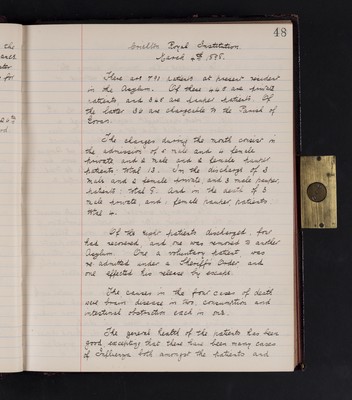 48
Royal Institution.
March 4th, 1895.
There are 791 patients at present resident
in the Asylum. Of these 445 are private
patients and 348 are pauper patients. Of
the latter 30 are chargeable to the Parish of
Govan.
The changes during the month consist in
the admission of 5 male and 4 female
private and 2 male and 2 female pauper
patients: total 13. In the discharge of 3
male and 2 female private and 3 male pauper
patients: total 8. And in the death of 3
male private, and 1 female pauper patients
total 4.
Of the eight patients discharged, four
had recovered, and one was removed to another
Asylum. One, a voluntary patient, was
re-admitted under a Sheriff's Order and
one effected his release by escape.
The causes in the four cases of death
were brain disease in two, consumption and
intestinal obstruction each in one.
The general health of the patients has been
good excepting that there have been many cases
of Influenza both amongst the patients and